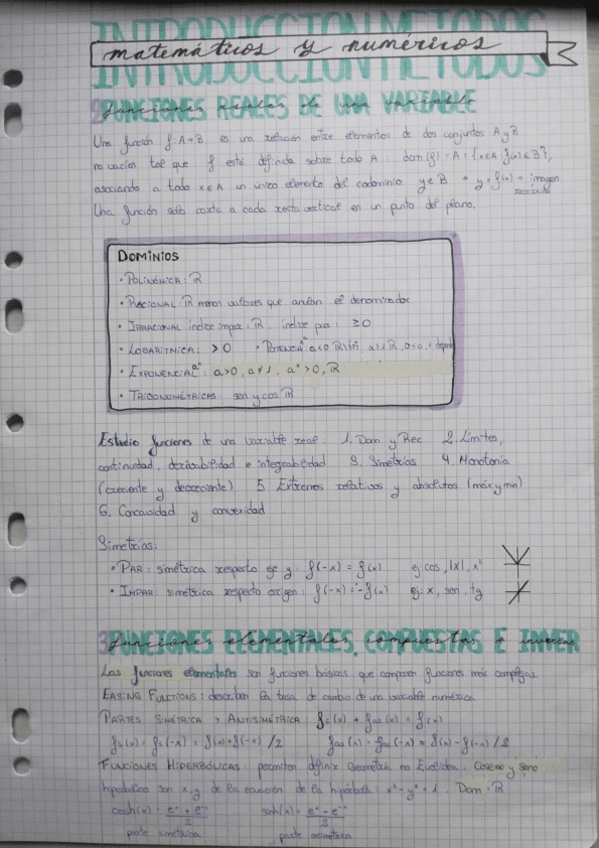 INTRODUCCION METODOS
matemáticos y numéricos
INTRODUCCION METODOS
FUNCIONES REALES DE UNA VARIABLE
funciones reales de una variable
Una función f: A→B es una relación entre elementos de dos conjuntos A y B
no vacíos tal que f está definida sobre todo A: dom(f) = A = {x∈A f(x)∈B},
asociando a todo x∈A un único elemento del codominio y∈B → y = f(x) = imagen
Una función solo corta a cada recta vertical en un punto del plano.
DOMINIOS
• POLINÓMICA: ℝ
• RACIONAL: ℝ menos valores que anulan el denominador
• IRRACIONAL índice impar: ℝ, índice par: ≥0
• LOGARÍTMICA: >0 • POTENCIA
• EXPONENCIAL: a>0, a≠1, aˣ>0, ℝ
• TRIGONOMÉTRICAS sen y cos ℝ
Estudio funciones de una variable real: 1. Dom y Rec 2. Límites,
continuidad, derivabilidad e integrabilidad 3. Simetrías 4. Monotonía
(creciente y decreciente) 5 Extremos relativos y absolutos (máx y mín)
6. Concavidad y convexidad
Simetrías:
• PAR: simétrica respecto eje y: f(-x) = f(x) ej: cos, |x|, x²
• IMPAR: simétrica respecto origen: f(-x) = -f(x) ej: x, sen, tg
3 FUNCIONES ELEMENTALES, COMPUESTAS E INVER
funciones elementales, compuestas e inversa
Las funciones elementales son funciones básicas que componen funciones más complejas
EASING FUNCTIONS: describen la tasa de cambio de una variable numérica
PARTES SIMÉTRICA Y ANTISIMÉTRICA: fs(x) + fas(x) = f(x)
fs(x) = fs(-x) = f(x)+f(-x)/2 fas(x) = -fas(-x) = f(x)-f(-x)/2
FUNCIONES HIPERBÓLICAS: permiten definir Geometría no Euclídea. Coseno y seno
hiperbólico son x, y de la ecuación de la hipérbola: x²-y²=1. Dom: ℝ
cosh(x) = eˣ+e⁻ˣ/2 senh(x) = eˣ-e⁻ˣ/2
parte simétrica parte asimétrica